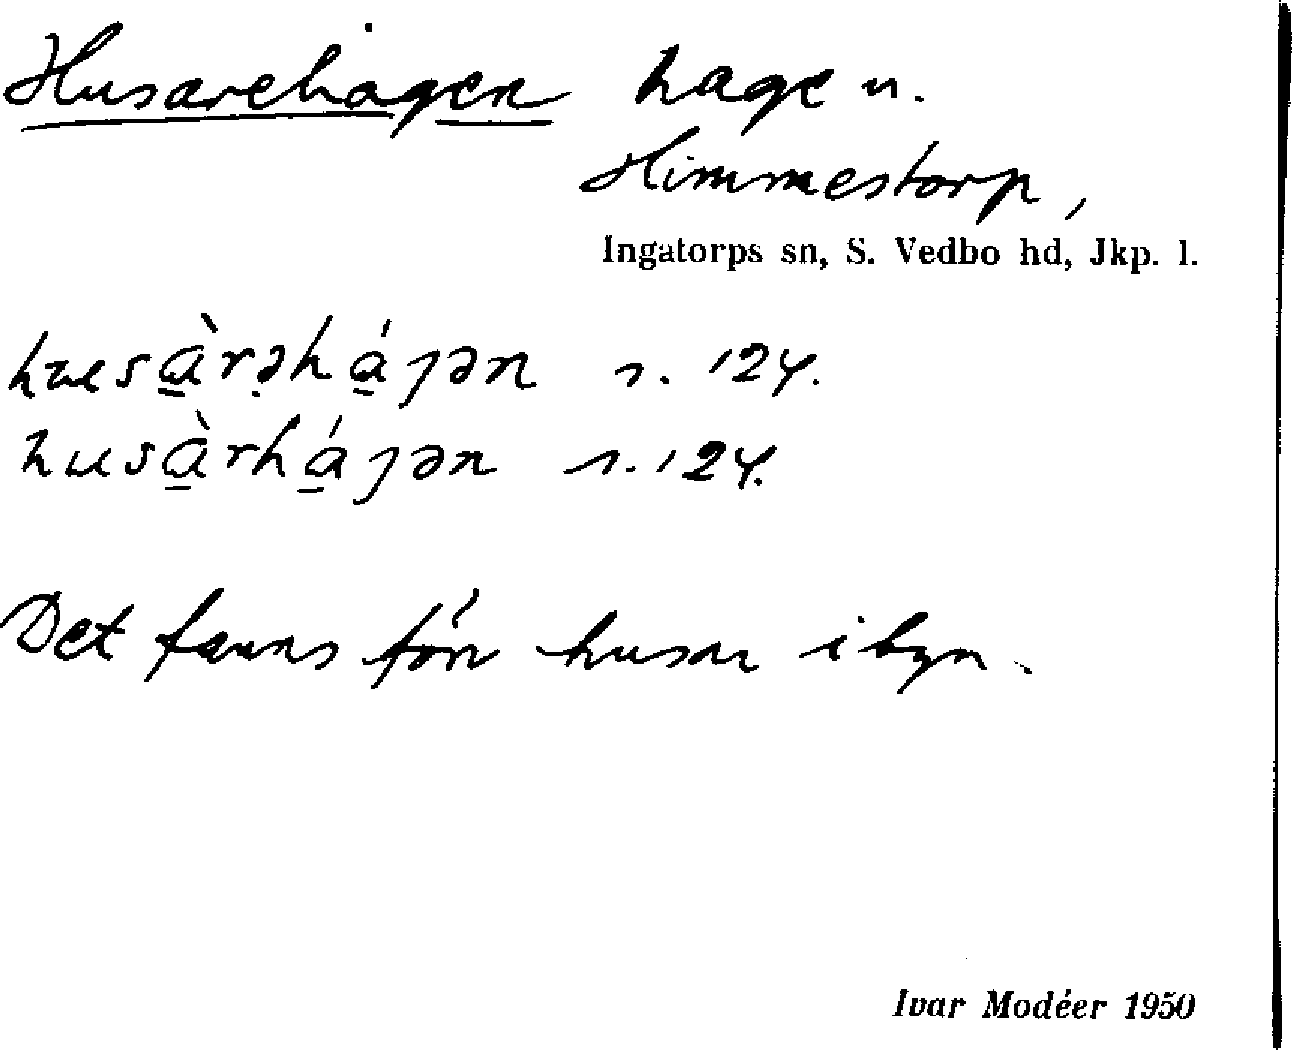 Husarehagen hage n.
Himmestorp,
Ingatorps sn, S. Vedbo hd, Jkp. l.
husà̲rəhá̲ȷən s. 124.
husà̲rhá̲ȷən s. 124.
Det fanns förr husar i byn.
Ivar Modéer 1950